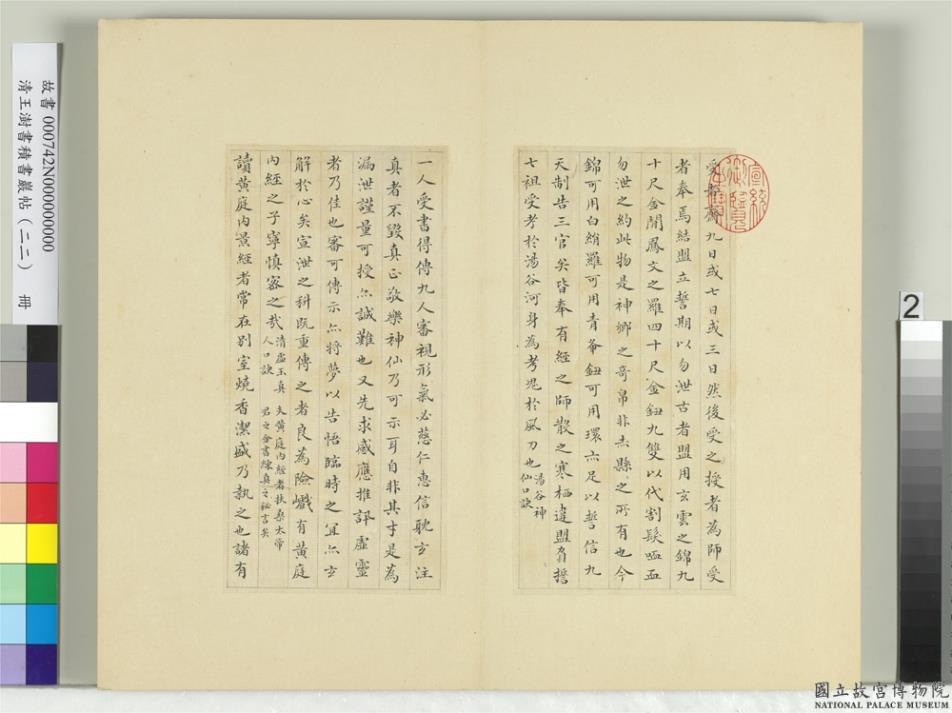 受者齋九日或七日或三日然後受之授者為師受
者奉焉結盟立誓期以勿泄古者盟用玄雲之錦九
十尺金開鳳文之羅四十尺金鈕九雙以代割髮歃血
勿泄之約此物是神鄉之奇帛非赤縣之所有也今
錦可用白絹羅可用青布鈕可用環亦足以誓信九
天制告三官矣皆奉有經之師散之寒栖違盟負誓
七祖受考於湯谷河身為考鬼於風刀也
湯谷神
仙口訣
一人受書得傳九人審視形氣必慈仁惠信耽玄注
真者不毀真正敬樂神仙乃可示耳自非其才是為
漏泄謹量可授亦誠難也又先求感應推訊虛靈
者乃佳也審可傳示亦將夢以告悟臨時之宜亦玄
解於心矣宣泄之科既重傳之者良為險巇有黃庭
內經之子寧慎密之哉
清虛王真 夫黃庭內經者扶桑太帝
人口訣 君之金書練真之秘言矣
讀黃庭內景經者常在別室燒香潔盛乃執之也諸有
故書 000742N000000000
清王澍書積書巖帖(二二) 冊
2
國立故宮博物院
NATIONAL PALACE MUSEUM